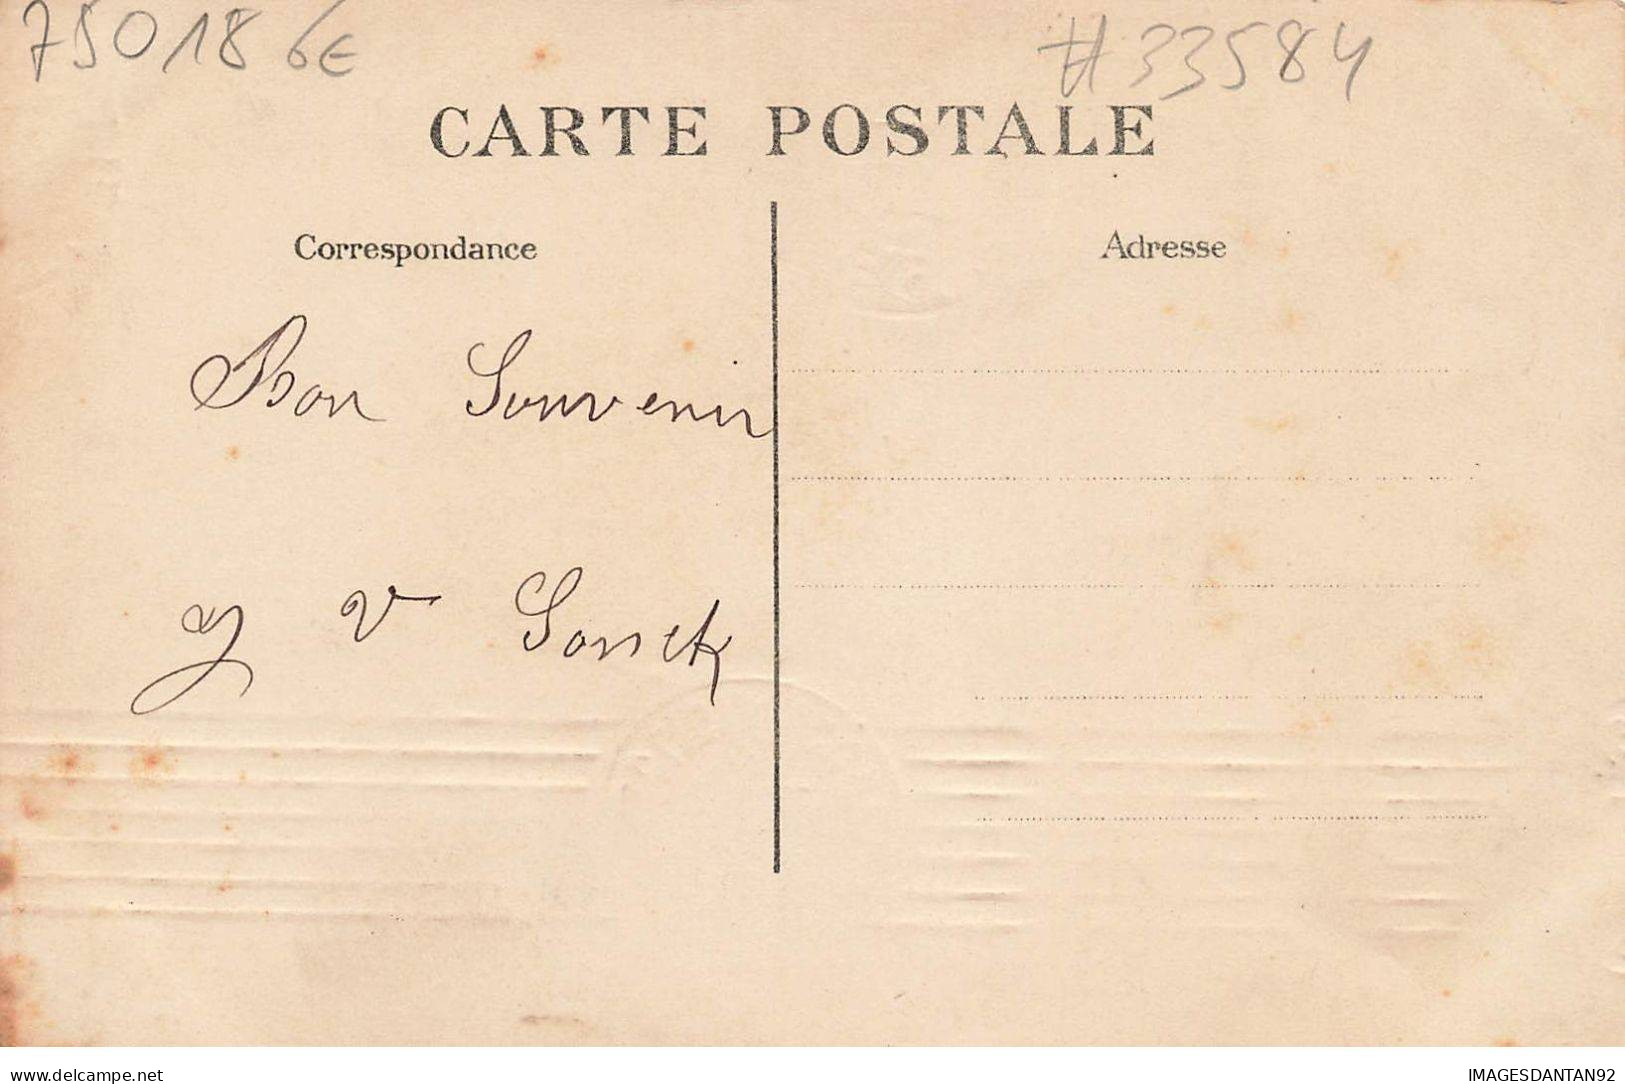 75018 6€
#33584
CARTE POSTALE
Correspondance
Adresse
Bon Souvenir
J V Sonck
delcampe.net
IMAGESDANTAN92